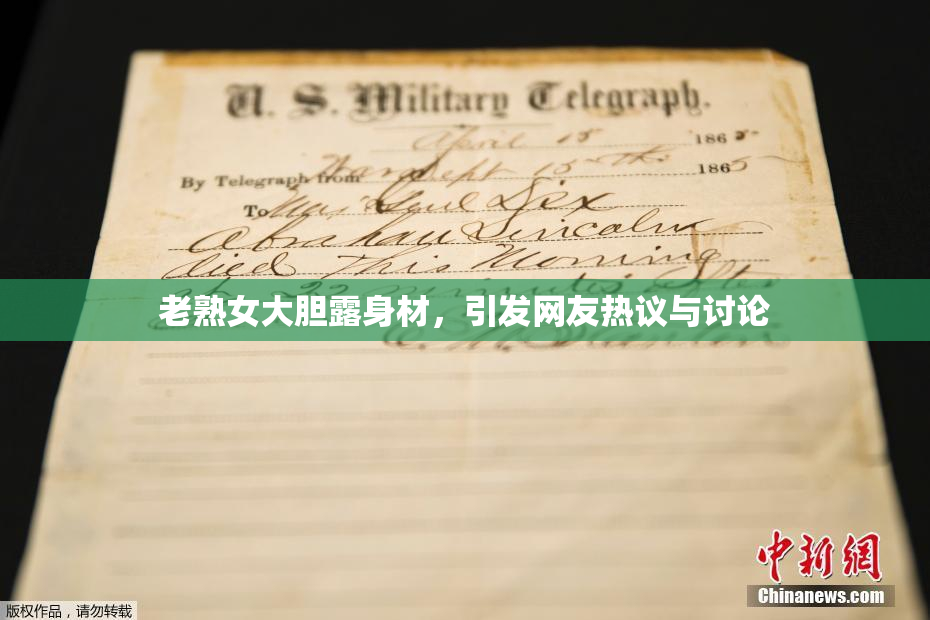 U. S. Military Telegraph.
April 15 1865
By Telegraph from War Dept 15th 1865
To Maj Genl Dix
Abraham Lincoln
died This Morning
at 22 minutes after
老熟女大胆露身材，引发网友热议与讨论
中新网
Chinanews.com
版权作品，请勿转载